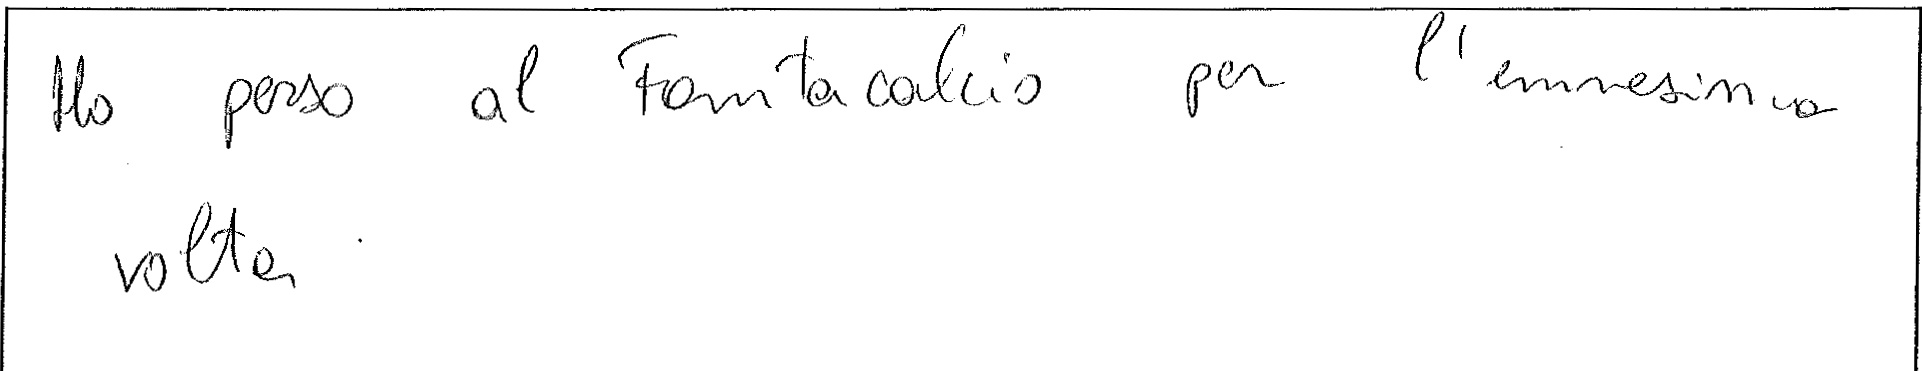 Ho perso al Fantacalcio per l'ennesima
volta.